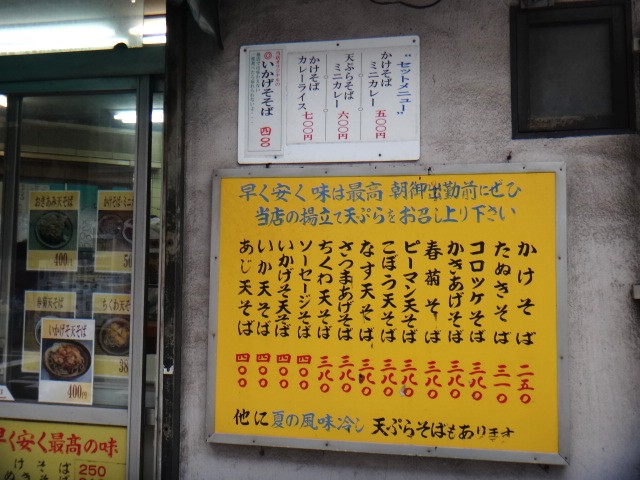 "セットメニュー"
かけそば
ミニカレー
五〇〇円
天ぷらそば
ミニカレー
六〇〇円
かけそば
カレーライス
七〇〇円
いかげそそば
四〇〇
早く安く味は最高 朝御出勤前にぜひ
当店の揚立て天ぷらをお召し上り下さい
かけそば 二五〇
たぬきそば 三一〇
コロッケそば 三八〇
かきあげそば 三八〇
春菊そば 三八〇
ピーマン天そば 三八〇
ごぼう天そば 三八〇
なす天そば 三八〇
さつまあげそば 三八〇
ちくわ天そば 三八〇
ソーセージそば 四〇〇
いかげそ天そば 四〇〇
いか天そば 四〇〇
あじ天そば 四〇〇
他に夏の風味冷し天ぷらそばもあります
400円
ちくわ天
38
いかげそ天そば
400円
早く安く最高の味
けそば 250
ぬきそば